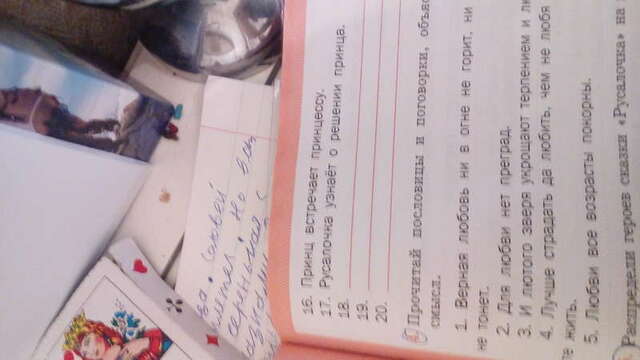 16. Принц встречает принцессу.
17. Русалочка узнаёт о решении принца.
18.
19.
20.
Прочитай пословицы и поговорки, объяс
смысл.
1. Верная любовь ни в огне не горит, ни
не тонет.
2. Для любви нет преград.
3. И лютого зверя укрощают терпением и лю
4. Лучше страдать да любить, чем не любя
жить.
5. Любви все возрасты покорны.
Распредели героев сказки «Русалочка» на